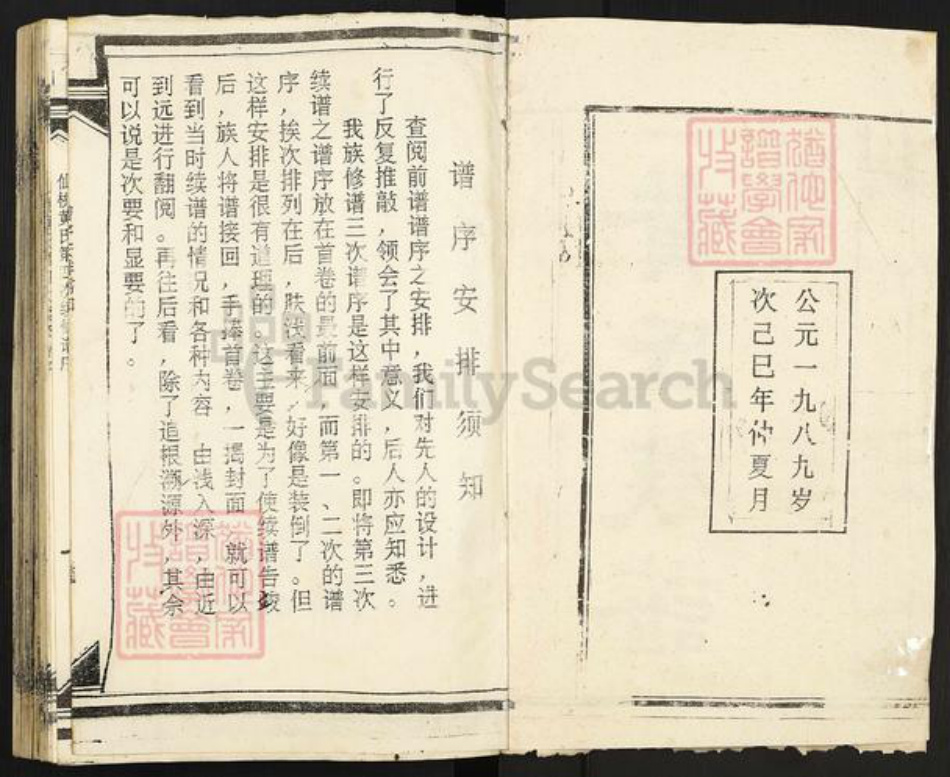 公元一九八九岁
次己巳年仲夏月
谱序安排须知
查阅前谱谱序之安排，我们对先人的设计，进
行了反复推敲，领会了其中意义，后人亦应知悉。
我族修谱三次谱序是这样安排的。即将第三次
续谱之谱序放在首卷的最前面，而第一、二次的谱
序，挨次排列在后，肤浅看来，好像是装倒了。但
这样安排是很有道理的。这主要是为了使续谱告竣
后，族人将谱接回，手捧首卷，一揭封面，就可以
看到当时续谱的情况和各种内容，由浅入深，由近
到远进行翻阅。再往后看，除了追根溯源外，其余
可以说是次要和显要的了。
FamilySearch